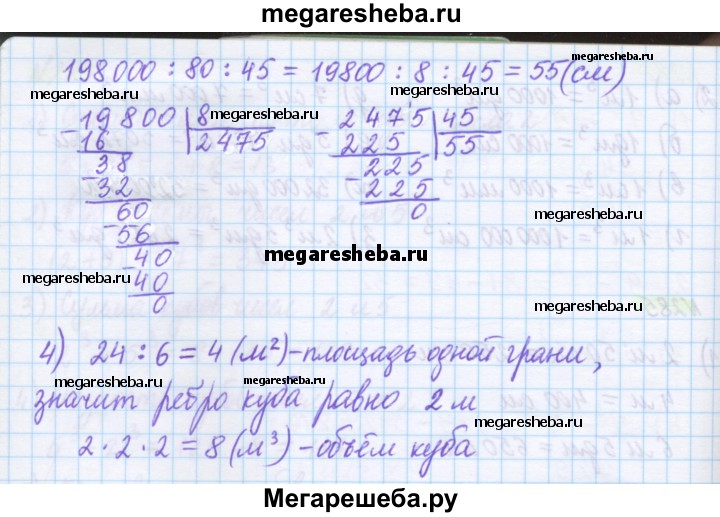 megaresheba.ru
megaresheba.ru megaresheba.ru
198000 : 80 : 45 = 19800 : 8 : 45 = 55 (см)
megaresheba.ru megaresheba.ru
19800 | 8
megaresheba.ru
16 | 2475
38
32
60
56
40
40
0
2475 | 45
megaresheba.ru
225 | 55
225
225
0
megaresheba.ru
megaresheba.ru
megaresheba.ru
4) 24 : 6 = 4 (м²) - площадь одной грани,
megaresheba.ru megaresheba.ru
значит ребро куба равно 2 м
megaresheba.ru
2 · 2 · 2 = 8 (м³) - объём куба
megaresheba.ru
Мегарешеба.ру